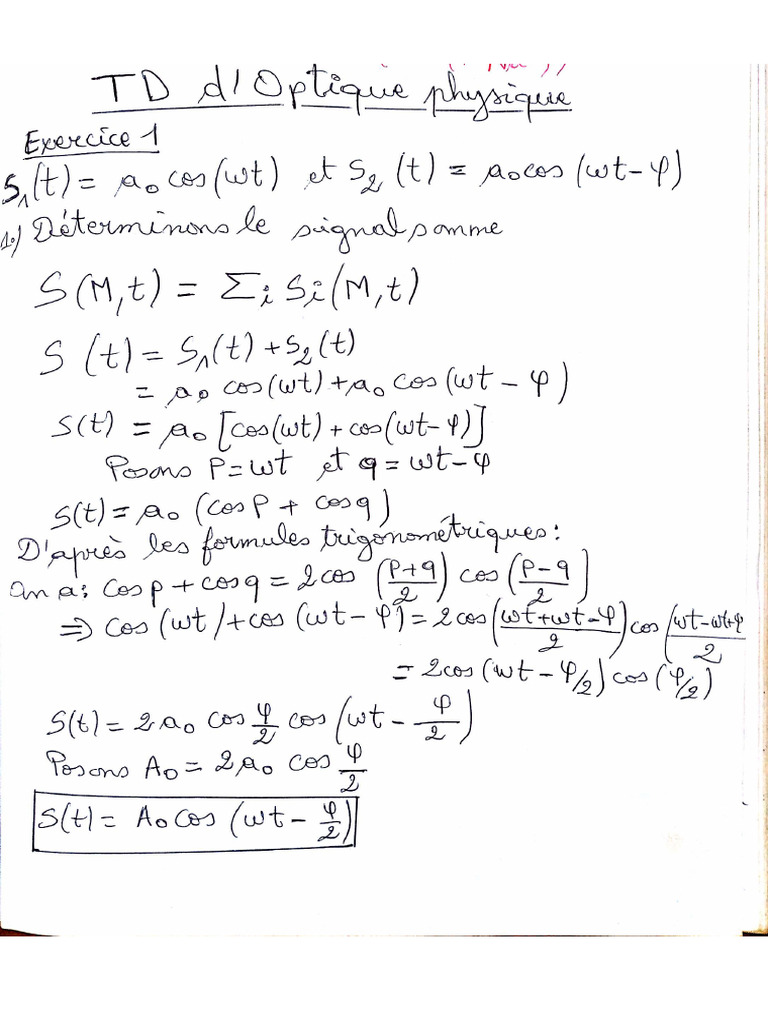 TD d'Optique physique
Exercice 1
S₁(t) = a₀cos(ωt) et S₂(t) = a₀cos(ωt-φ)
1°) Déterminons le signal somme
S(M,t) = Σᵢ Sᵢ(M,t)
S(t) = S₁(t) + S₂(t)
= a₀ cos(ωt) + a₀ cos(ωt - φ)
S(t) = a₀ [cos(ωt) + cos(ωt-φ)]
Posons P = ωt et q = ωt - φ
S(t) = a₀ (cos P + cos q)
D'après les formules trigonométriques :
On a : cos p + cos q = 2cos ((P+q)/2) cos ((P-q)/2)
⇒ cos(ωt) + cos(ωt-φ) = 2cos((ωt+ωt-φ)/2) cos((ωt-ωt+φ)/2
= 2cos(ωt - φ/2) cos(φ/2)
S(t) = 2a₀ cos φ/2 cos (ωt - φ/2)
Posons A₀ = 2a₀ cos φ/2
S(t) = A₀ cos (ωt - φ/2)